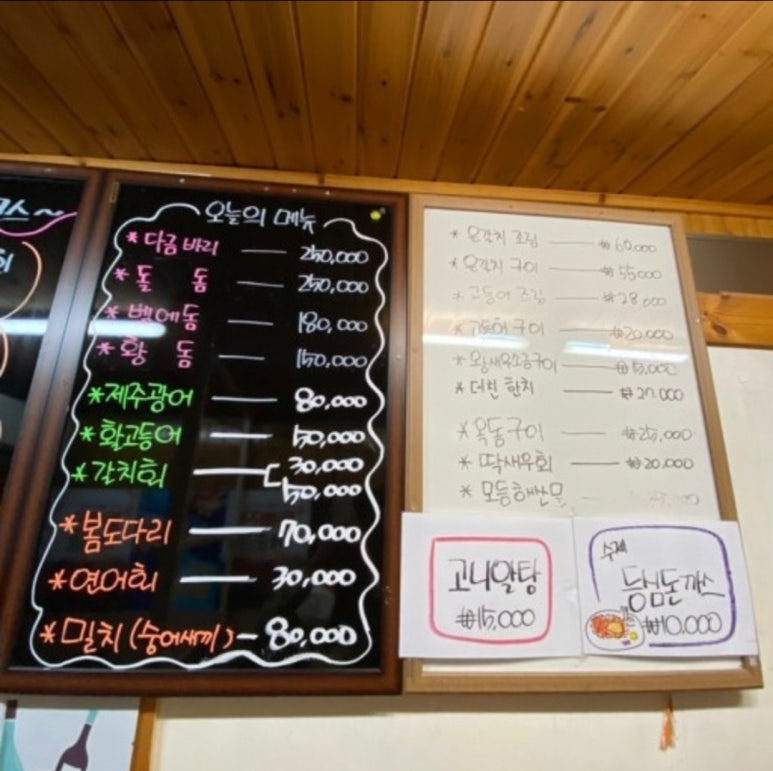 오늘의 메뉴
* 다금바리 — 250,000
* 돌 돔 — 250,000
* 뱅에돔 — 180,000
* 황 돔 — 150,000
* 제주광어 — 80,000
* 활고등어 — 50,000
* 갈치회 — 30,000
50,000
* 봄도다리 — 70,000
* 연어회 — 30,000
* 밀치 (숭어새끼) — 80,000
* 은갈치 조림 — ₩60,000
* 은갈치 구이 — ₩55,000
* 고등어 조림 — ₩28,000
* 고등어 구이 — ₩20,000
* 왕새우소금구이 —
* 더친 한치 — ₩27,000
* 옥돔구이 — ₩25,000
* 딱새우회 — ₩20,000
* 모듬해산물
고니알탕
₩15,000
수제
등심돈까스
₩10,000